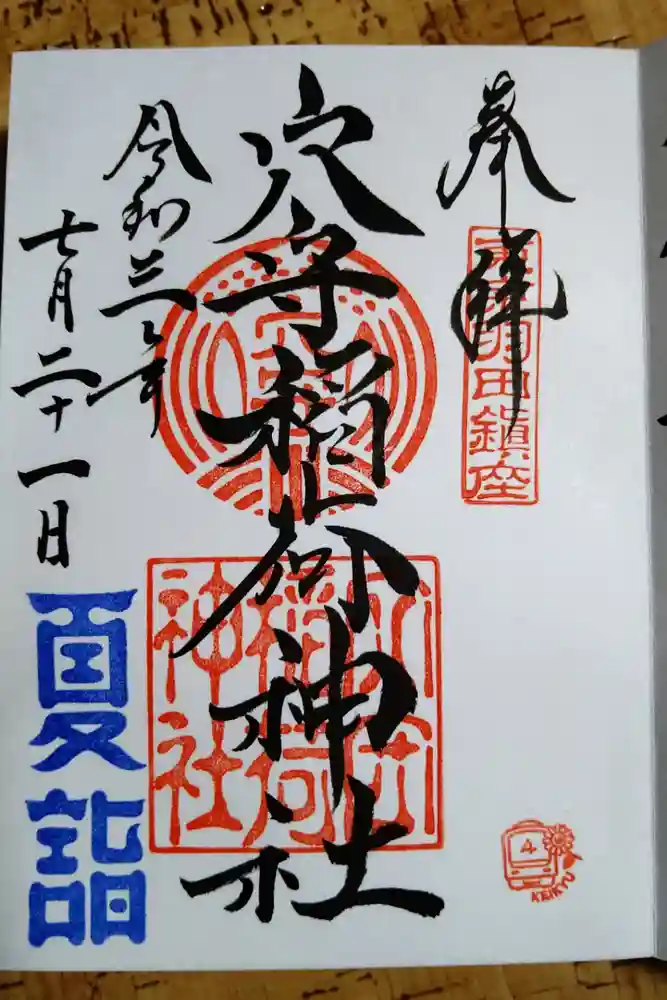 奉拝
東京羽田鎮座
穴守稲荷神社
穴守
稲荷
神社
令和三年
七月二十一日
夏詣
4
KEIKYU